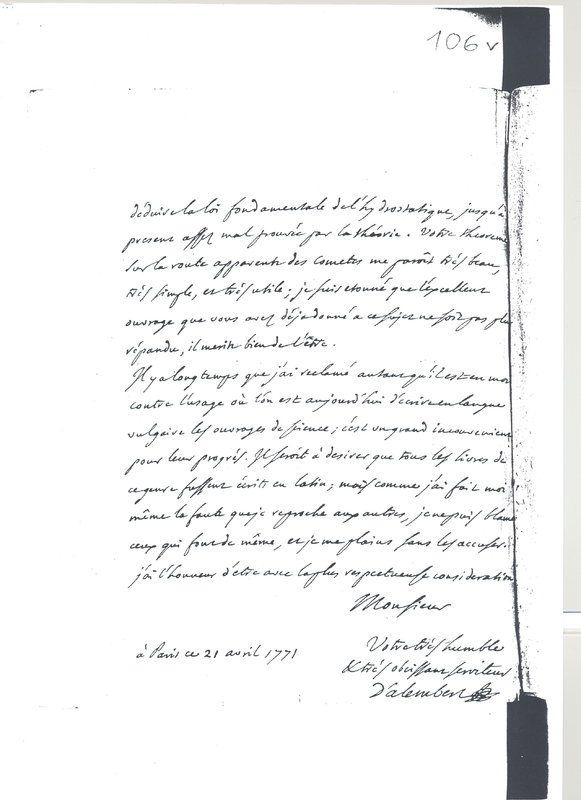 106 v
déduire la loi fondamentale de l'hydrostatique, jusqu'à
present assez mal prouvée par la théorie. Votre theoreme
sur la route apparente des cometes me paroit très beau,
très simple, et très utile; je suis etonné que l'excellent
ouvrage que vous avez déja donné a ce sujet ne soit pas plus
répandu, il merite bien de l'être.
Il y a longtemps que j'ai reclamé autant qu'il est en moi
contre l'usage où l'on est aujourd'hui d'écrire en langue
vulgaire les ouvrages de science; c'est un grand inconvenient
pour leur progrès. Il seroit à desirer que tous les livres de
ce genre fussent écrits en latin; mais comme j'ai fait moi
même la faute que je reproche aux autres, je ne puis blamer
ceux qui font de même, et je me plains sans les accuser.
j'ai l'honneur d'etre avec la plus respectueuse consideration
Monsieur
à Paris ce 21 avril 1771
Votre très humble
& très obeissant serviteur
D'alembert